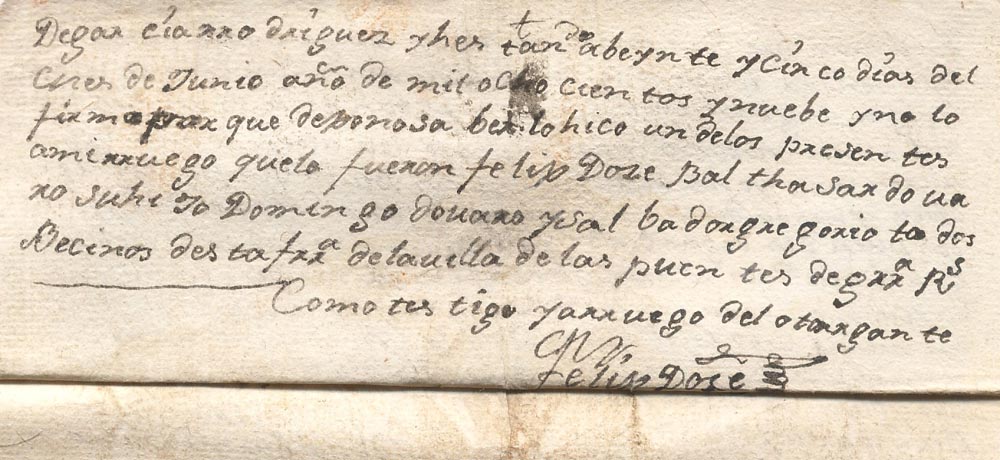 Degar cíarro dríguez yhes tando abeynte ycínco días del
mes de Junio año de mil ocho cientos ynuebe yno lo
firmo porque deponosa ber lohico un delos presentes
amirruego quelo fueron felip Doze Balthasar doua
ro suhi Jo Domingo douaro ysal bador gregorio to dos
Becinos desta frra delavilla de las puen tes de grra Rs
Como tes tigo yarruego del otorgante
Felip Doze